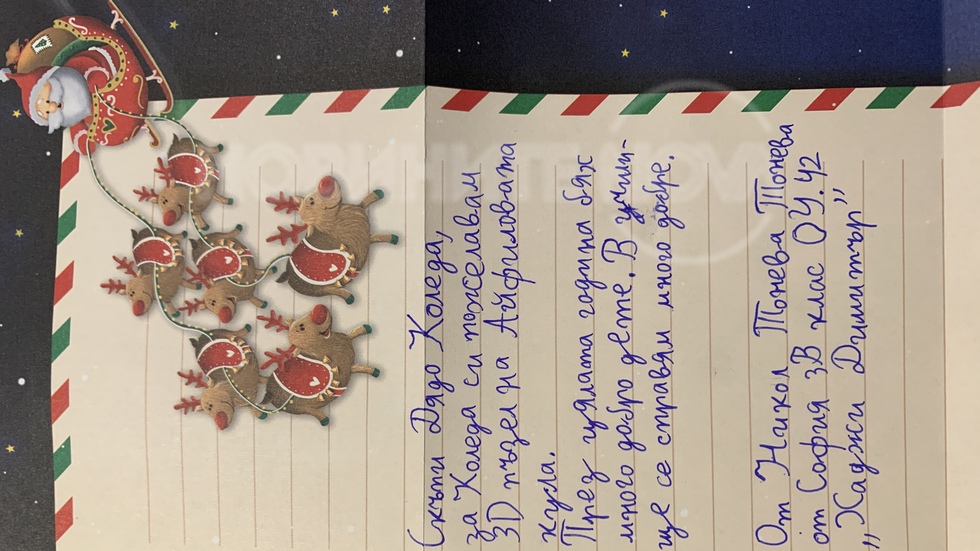 Скъпи Дядо Коледа,
за Коледа си пожелавам
3D пъзел на Айфиловата
кула.
През цялата година бях
много добро дете. В учили-
ще се справям много добре.
От Никол Тонева Тонева
от София 3В клас ОУ.42
„Хаджи Димитър”